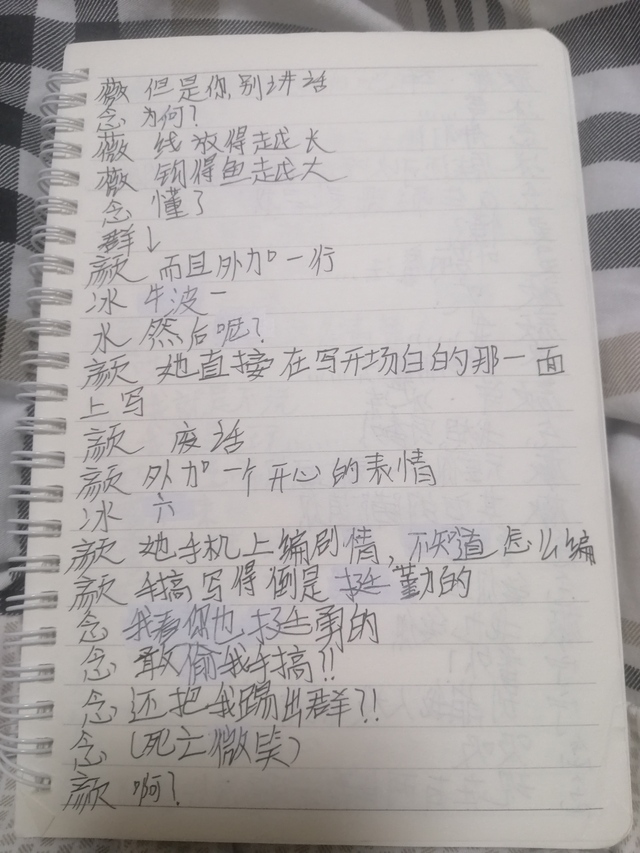 薇 但是你别讲话
念 为何?
薇 线放得越长
薇 钓得鱼越大
念 懂了
群↓
颜 而且外加一行
冰 牛波一
水 然后呢?
颜 她直接在写开场白的那一面
上写
颜 废话
颜 外加一个开心的表情
冰 六
颜 她手机上编剧情,不知道怎么编
颜 手搞写得倒是挺勤的
念 我看你也挺勇的
念 敢偷我手搞!!
念 还把我踢出群?!
念 (死亡微笑)
颜 啊?